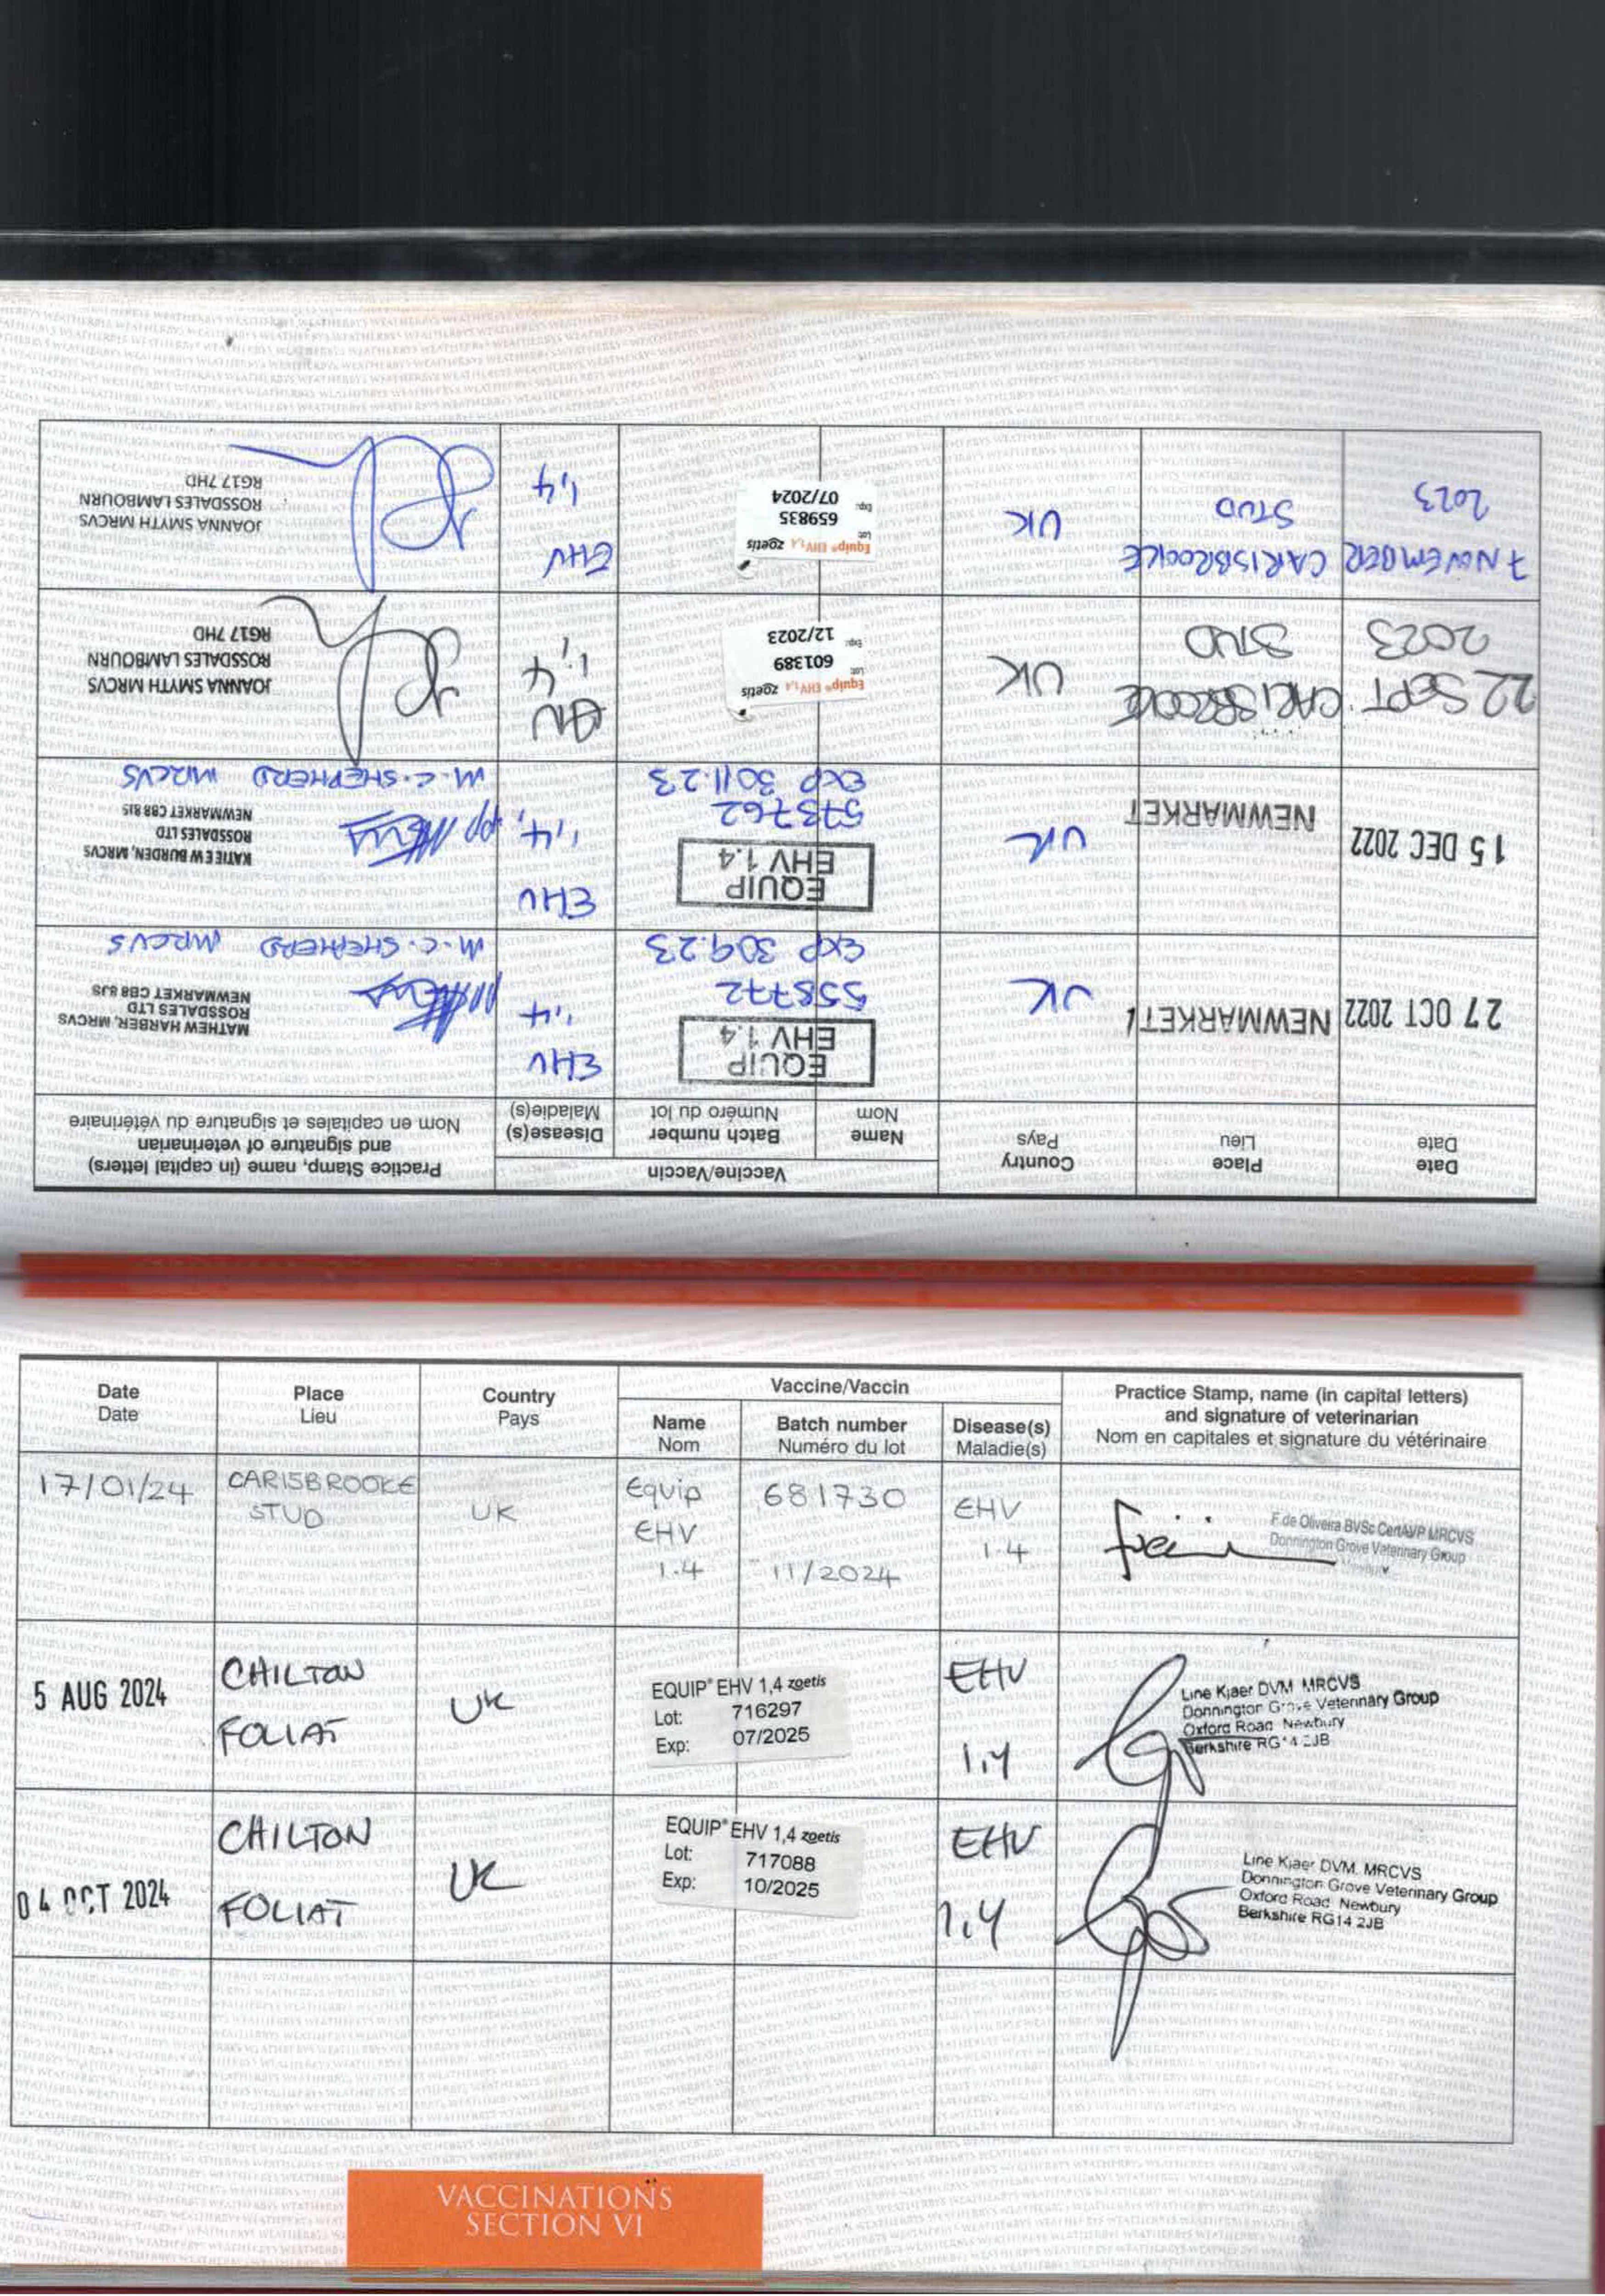 Date
Date
Place
Lieu
Country
Pays
Vaccine/Vaccin
Name
Nom
Batch number
Numéro du lot
Disease(s)
Maladie(s)
Practice Stamp, name (in capital letters)
and signature of veterinarian
Nom en capitales et signature du vétérinaire
27 OCT 2022
NEWMARKET
UK
EQUIP
EHV 1.4
558772
EXP 30.9.23
EHV
1,4
MATHEW HARBER, MRCVS
ROSSDALES LTD
NEWMARKET CB8 8JS
M.C. SHEPHERD MRCVS
15 DEC 2022
NEWMARKET
UK
EQUIP
EHV 1.4
573762
EXP 30.11.23
EHV
1,4
pp
KATIE E W BURDEN, MRCVS
ROSSDALES LTD
NEWMARKET CB8 8JS
M.C. SHEPHERD MRCVS
22 SEPT.
2023
CARISBROOKE
STUD
UK
Equip® EHV 1,4 zoetis
Lot: 601389
Exp: 12/2023
1,4
JOANNA SMYTH MRCVS
ROSSDALES LAMBOURN
RG17 7HD
7 NOVEMBER
2023
CARISBROOKE
STUD
UK
Equip® EHV 1,4 zoetis
Lot: 659835
Exp: 07/2024
EHV
1,4
JOANNA SMYTH MRCVS
ROSSDALES LAMBOURN
RG17 7HD
Date
Date
Place
Lieu
Country
Pays
Vaccine/Vaccin
Name
Nom
Batch number
Numéro du lot
Disease(s)
Maladie(s)
Practice Stamp, name (in capital letters)
and signature of veterinarian
Nom en capitales et signature du vétérinaire
17/01/24
CARISBROOKE
STUD
UK
Equip
EHV
1.4
681730
11/2024
EHV
1.4
F. de Oliveira BVSc CertAVP MRCVS
Donnington Grove Veterinary Group
5 AUG 2024
CHILTON
FOLIAT
UK
EQUIP® EHV 1,4 zoetis
Lot: 716297
Exp: 07/2025
EHV
1,4
Line Kjaer DVM MRCVS
Donnington Grove Veterinary Group
Oxford Road Newbury
Berkshire RG14 2JB
04 OCT 2024
CHILTON
FOLIAT
UK
EQUIP® EHV 1,4 zoetis
Lot: 717088
Exp: 10/2025
EHV
1,4
Line Kjaer DVM MRCVS
Donnington Grove Veterinary Group
Oxford Road Newbury
Berkshire RG14 2JB
VACCINATIONS
SECTION VI